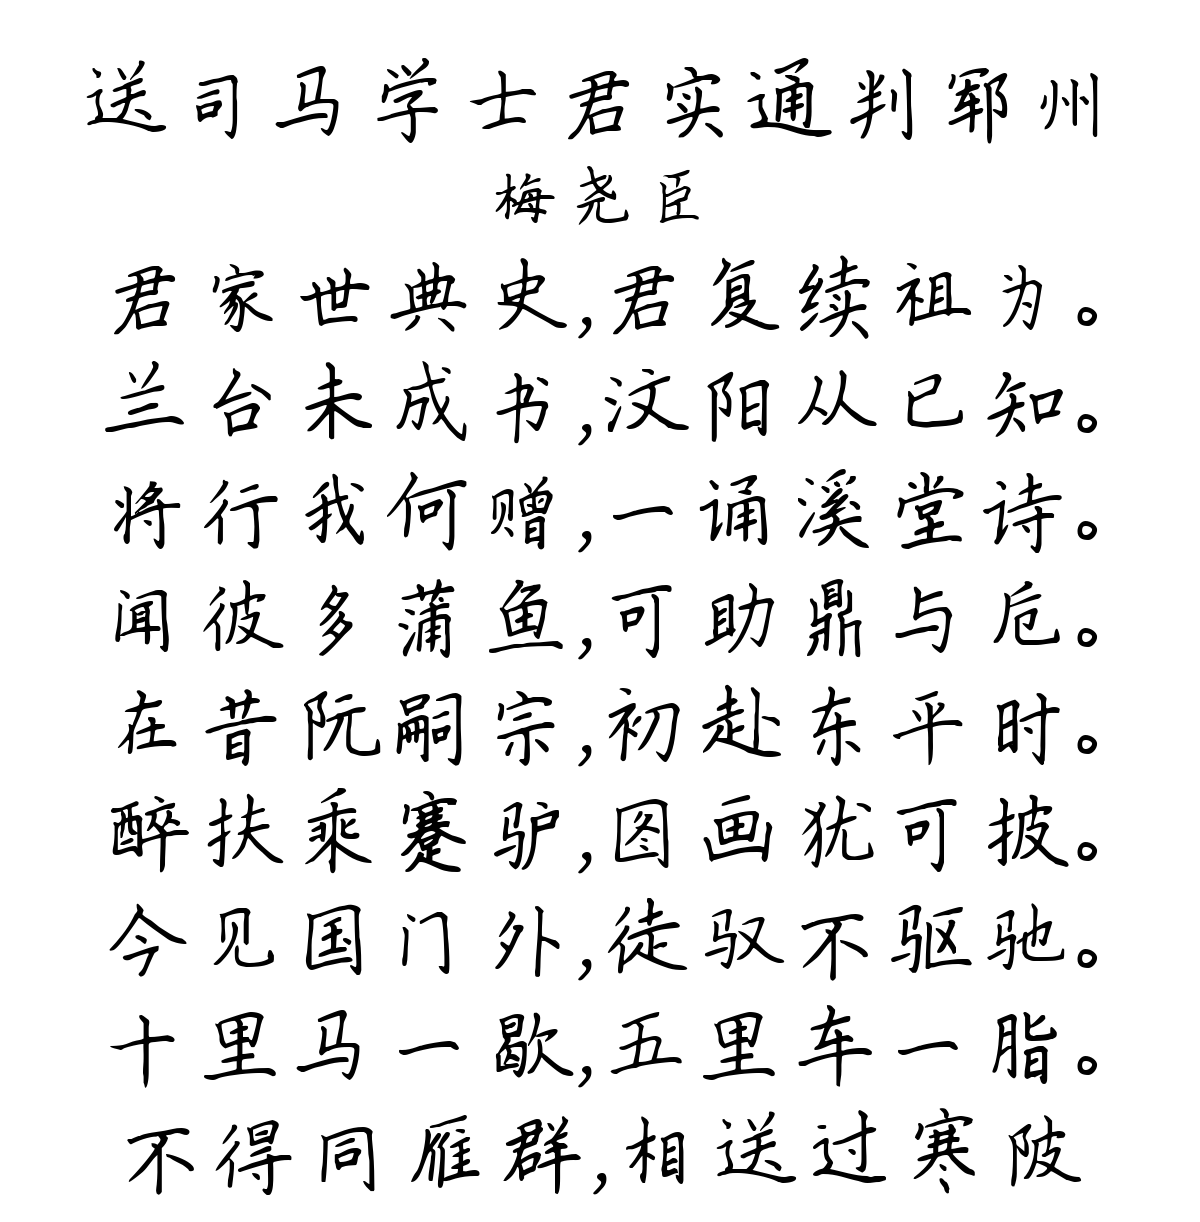 送司马学士君实通判郓州
梅尧臣
君家世典史,君复续祖为。
兰台未成书,汶阳从已知。
将行我何赠,一诵溪堂诗。
闻彼多蒲鱼,可助鼎与卮。
在昔阮嗣宗,初赴东平时。
醉扶乘蹇驴,图画犹可披。
今见国门外,徒驭不驱驰。
十里马一歇,五里车一脂。
不得同雁群,相送过寒陂